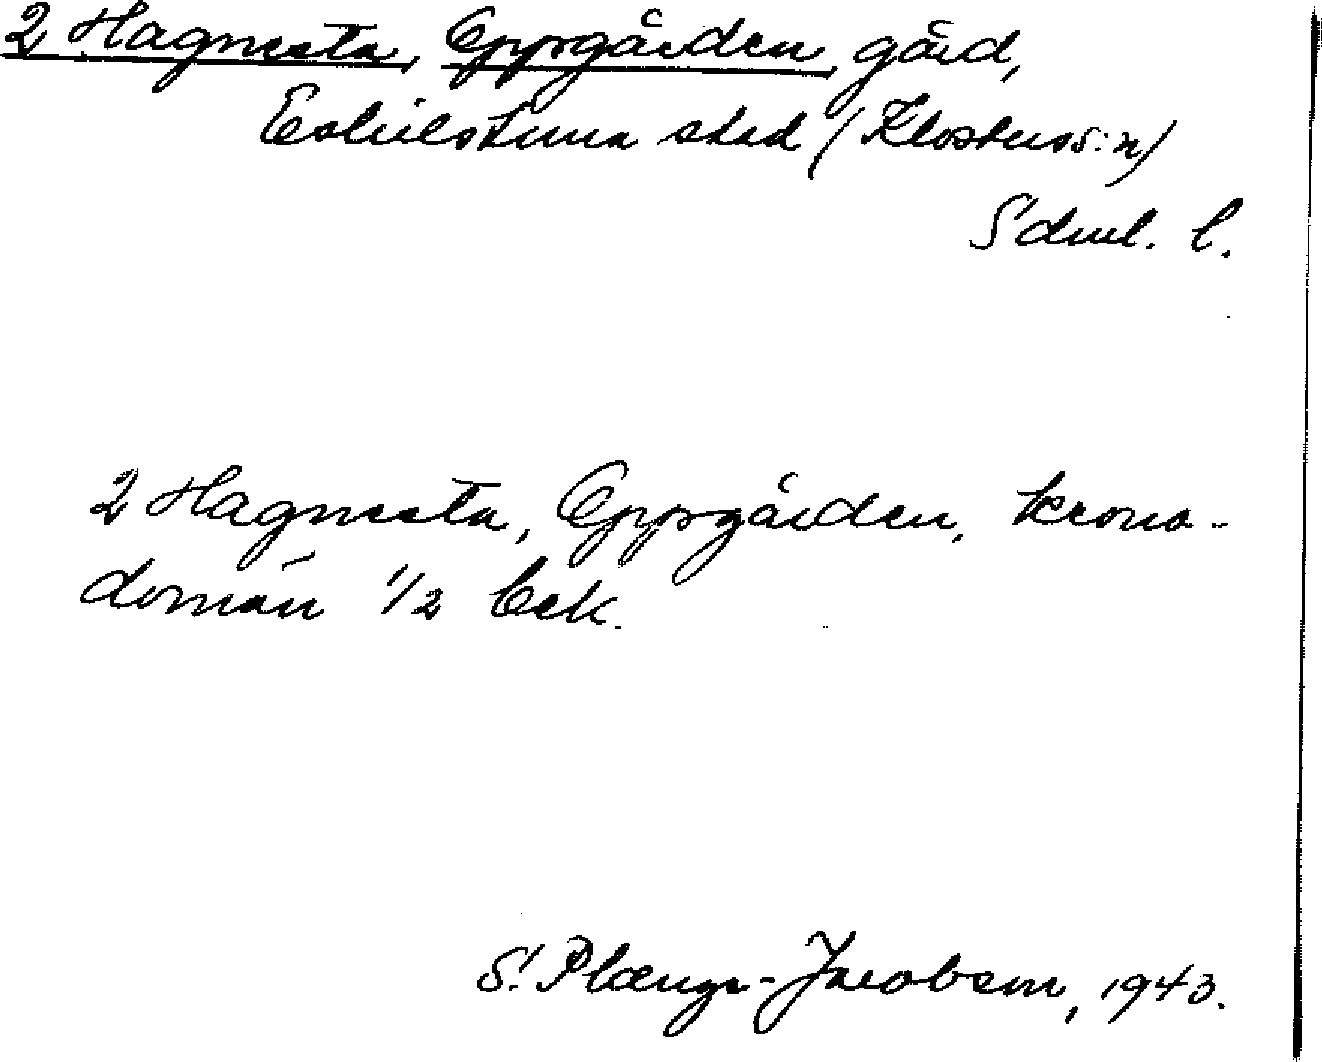 2 Hagnesta, Oppgården, gård,
Eskilstuna stad (Klosters s:n)
Sdml. l.
2 Hagnesta, Oppgården, krono-
domän 1/2 bek.
S. Plænge-Jacobson, 1943.